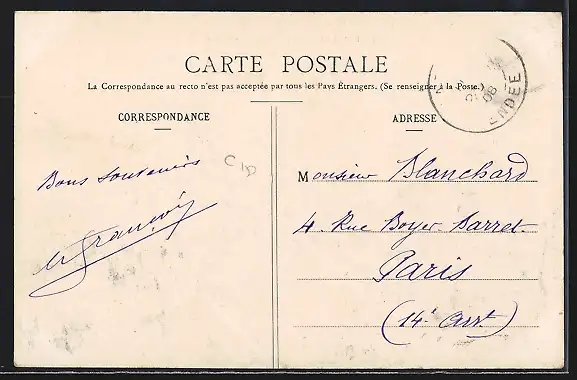 CARTE POSTALE
La Correspondance au recto n'est pas acceptée par tous les Pays Étrangers. (Se renseigner à la Poste.)
08
ENDEE
CORRESPONDANCE
ADRESSE
Bons souvenirs
Monsieur Blanchard
4. Rue Boyer-Barret.
Paris
(14e Arrt)